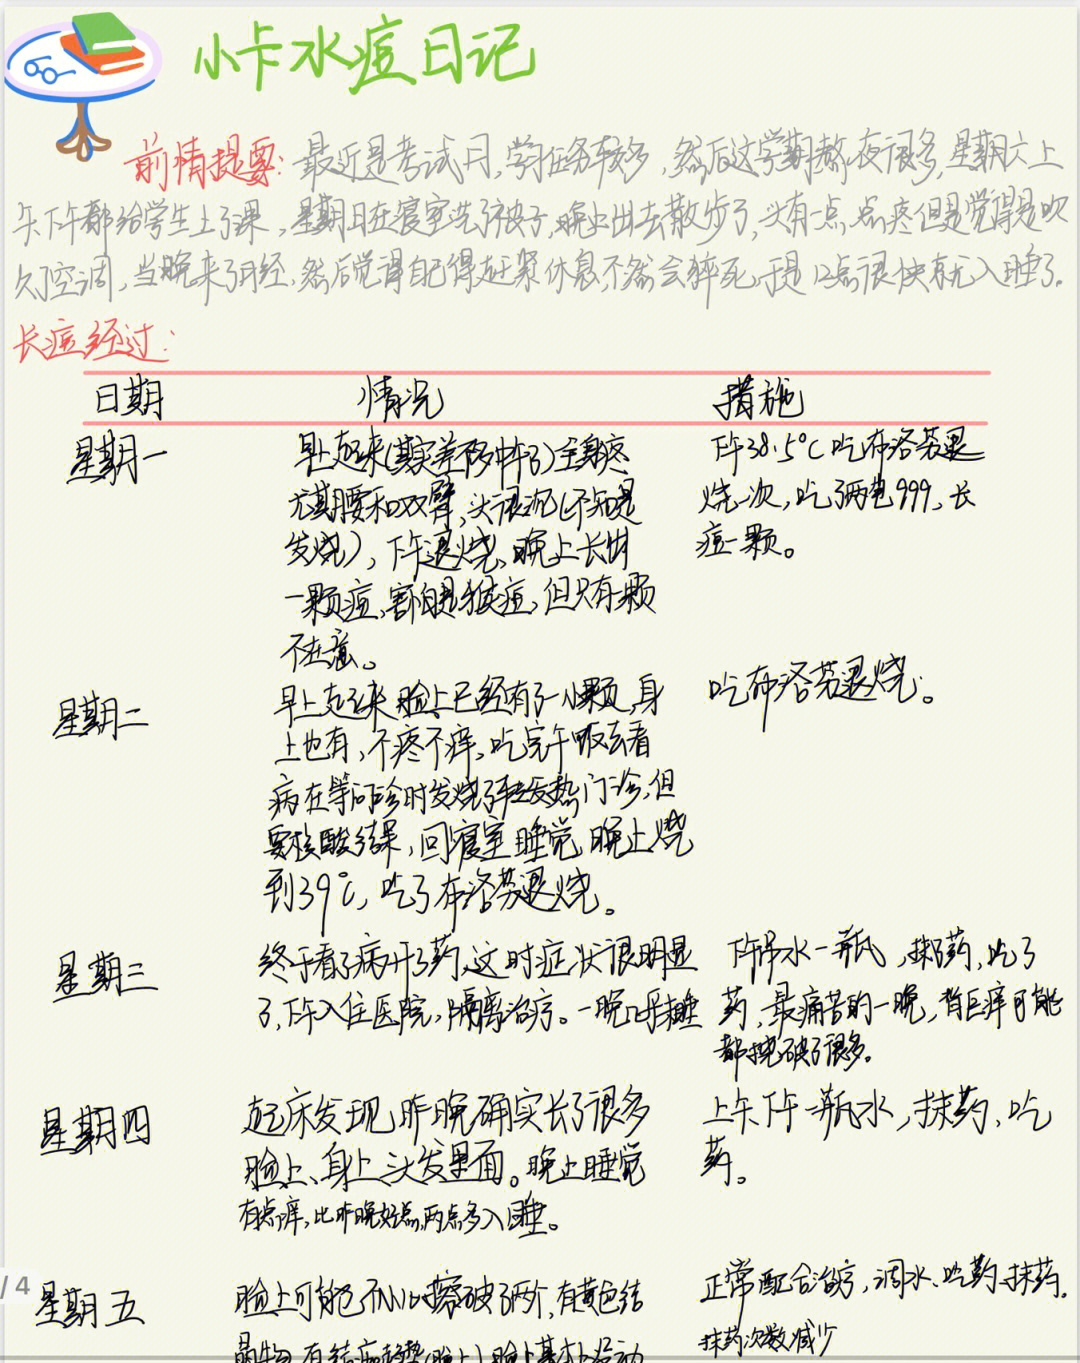 小卡水痘日记
前情提要：最近是考试月，学习任务较多，然后这学期熬夜很多，星期六上
午下午都给学生上了课，星期日在寝室洗了被子，晚上出去散步了，头有一点点疼但是觉得是吹
久了空调，当晚来了月经，然后觉得自己得赶紧休息，不然会猝死，于是12点很快就入睡了。
长痘经过：
日期 情况 措施
星期一 早上起来(其实差不多中午了)全身疼 下午38.5°C吃布洛芬退
尤其腰和双臂，头很沉(不知是 烧一次，吃了两包999，长
发烧)，下午退烧，晚上长出 痘一颗。
一颗痘，害怕是猴痘，但只有一颗
不在意。
星期二 早上起来脸上已经有了一小颗，身 吃布洛芬退烧。
上也有，不疼不痒，吃完午饭去看
病在等门诊时发烧了转去发热门诊，但
要核酸结果，回寝室睡觉，晚上烧
到39°C，吃了布洛芬退烧。
星期三 终于看了病开了药，这时症状很明显 下午吊水一瓶，抹了药，吃了
了，下午入住医院，隔离治疗。一晚上没睡 药，最痛苦的一晚，背巨痒可能
都挠破了很多。
星期四 起床发现，昨晚确实长了很多 上午下午一瓶水，抹药，吃
脸上、身上、头发里面。晚上睡觉 药。
有点痒，比昨晚好点，两点多入睡。
星期五 脸上可能 破了两个，有黄色结 正常配合治疗，调水、吃药、抹药。
晶物，有结痂趋势(脸上)，脸上基本没动 抹药次数减少
/4